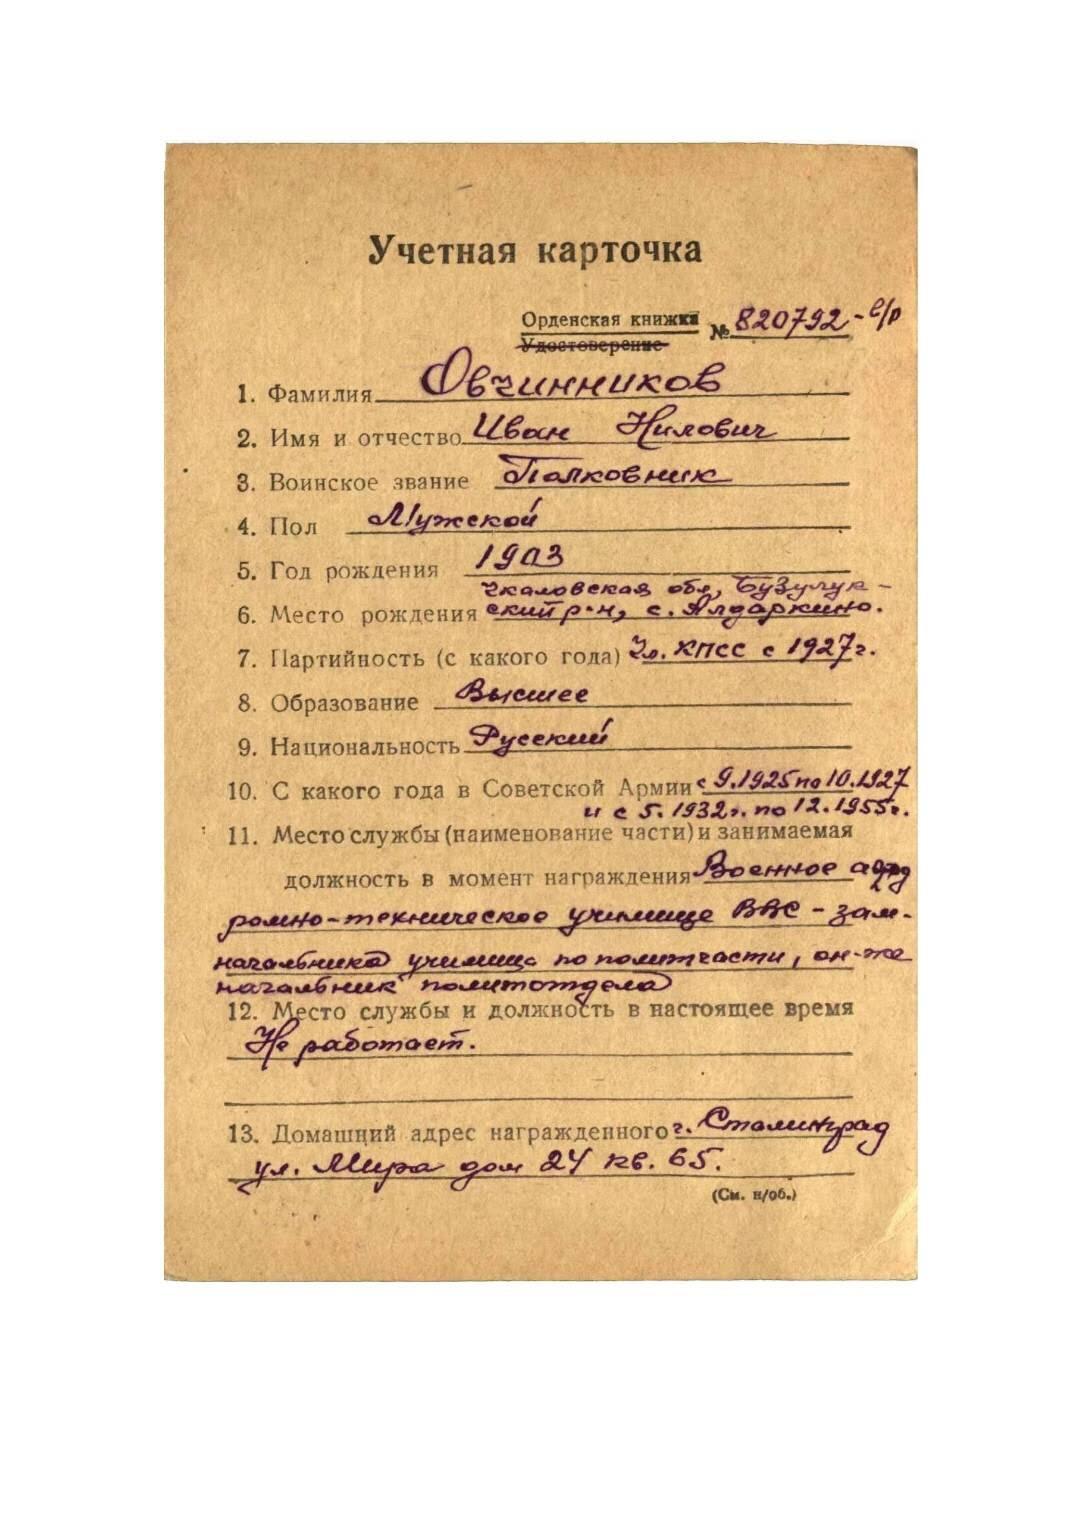 Учетная карточка
Орденская книжка № 820792 - б/р
Удостоверение
1. Фамилия Овчинников
2. Имя и отчество Иван Нилович
3. Воинское звание Полковник
4. Пол Мужской
5. Год рождения 1903
Чкаловская обл, Бузулук-
6. Место рождения ский р-н, с. Алдаркино.
7. Партийность (с какого года) Чл. КПСС с 1927г.
8. Образование Высшее
9. Национальность Русский
10. С какого года в Советской Армии с 9.1925 по 10.1927
и с 5. 1932г. по 12.1955г.
11. Место службы (наименование части) и занимаемая
должность в момент награждения Военное аэрод
ромно-техническое училище ВВС - зам.
начальника училища по политчасти, он-же
начальник политотдела
12. Место службы и должность в настоящее время
Не работает.
13. Домашний адрес награжденного г. Сталинград
ул. Мира дом 24 кв. 65.
(См. н/об.)